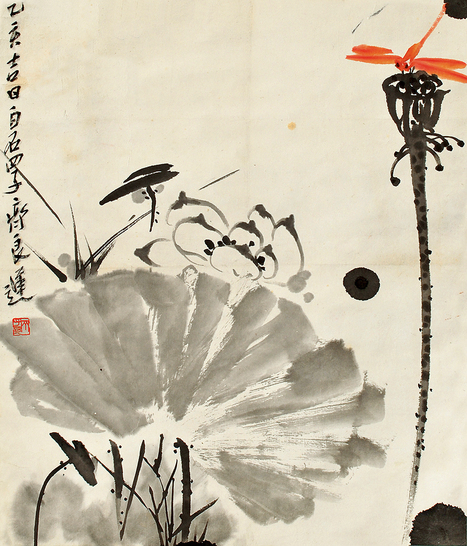 乙亥吉日白石四子齊良遲